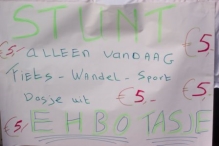 STUNT
€5,- ALLEEN VANDAAG €5,-
Fiets - Wandel - Sport
Dasje uit €5,-
€5,- EHBO TASJE